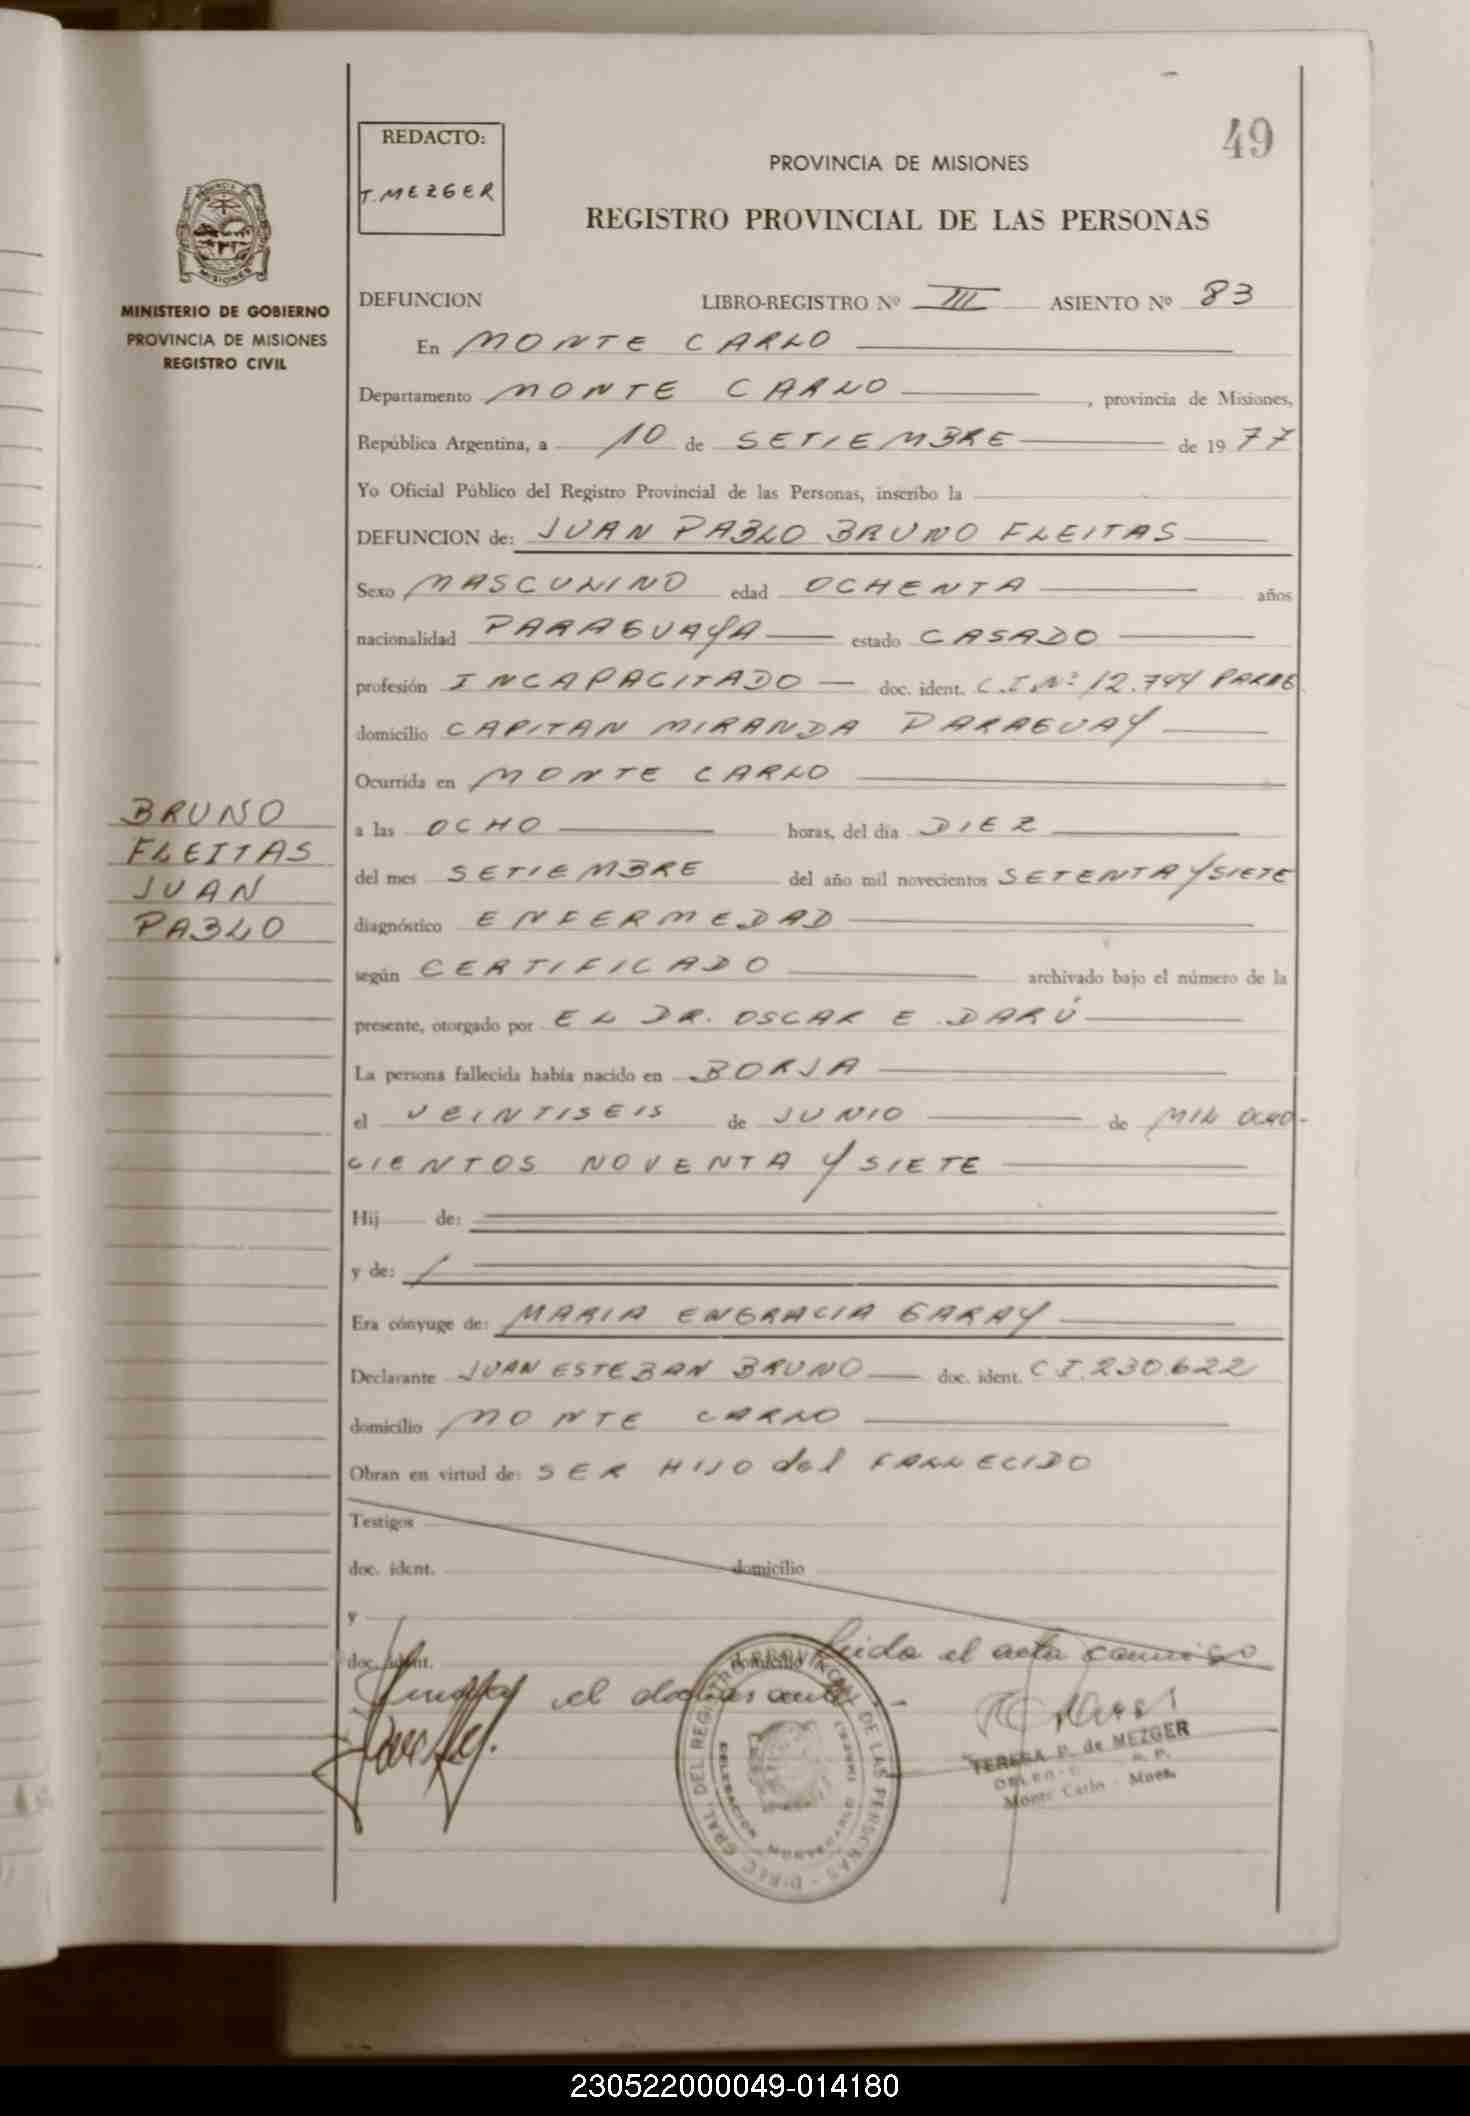 49
REDACTO:
T. MEZGER
PROVINCIA DE MISIONES
REGISTRO PROVINCIAL DE LAS PERSONAS
MINISTERIO DE GOBIERNO
PROVINCIA DE MISIONES
REGISTRO CIVIL
DEFUNCION LIBRO-REGISTRO Nº III ASIENTO Nº 83
En MONTE CARLO
Departamento MONTE CARLO, provincia de Misiones,
República Argentina, a 10 de SETIEMBRE de 1977
Yo Oficial Público del Registro Provincial de las Personas, inscribo la
DEFUNCION de: JUAN PABLO BRUNO FLEITAS
Sexo MASCULINO edad OCHENTA años
nacionalidad PARAGUAYA estado CASADO
profesión INCAPACITADO doc. ident. C.I.Nº 12.744 PARAG
domicilio CAPITAN MIRANDA PARAGUAY
Ocurrida en MONTE CARLO
BRUNO
FLEITAS
JUAN
PABLO
a las OCHO horas, del día DIEZ
del mes SETIEMBRE del año mil novecientos SETENTA Y SIETE
diagnóstico ENFERMEDAD
según CERTIFICADO archivado bajo el número de la
presente, otorgado por EL DR. OSCAR E. DARÚ
La persona fallecida había nacido en BORJA
el VEINTISEIS de JUNIO de MIL OCHO-
CIENTOS NOVENTA Y SIETE
Hij de:
y de:
Era cónyuge de: MARIA ENGRACIA GARAY
Declarante JUAN ESTEBAN BRUNO doc. ident. C I. 230.622
domicilio MONTE CARLO
Obran en virtud de: SER HIJO del FALLECIDO
Testigos
doc. ident. domicilio
y
doc. ident. domicilio Leida el acta conmigo
el declarante
DIREC. GRAL. DEL REGISTRO PROVINCIAL DE LAS PERSONAS
DELEGACION
TERESA P. de MEZGER
Monte Carlo - Mnes.
230522000049-014180